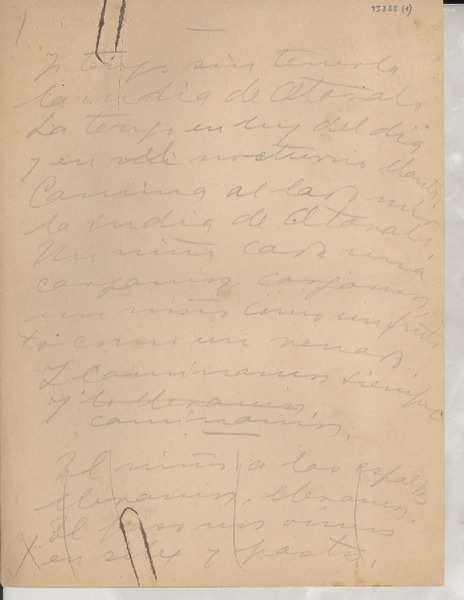 13888 (1)
1.
Yo tengo sin tenerla
la india de Otavalo.
La tengo en luz del día
y en nocturno
Camina al lado mío
la india de Otavalo.
Un niño cada una
cargamos cargamos
un niño como un fruto
o como un venado
Y caminamos siempre
y lo llevamos
caminamos.
El niño a las espaldas
llevamos, llevamos.
El
X en y pasto.